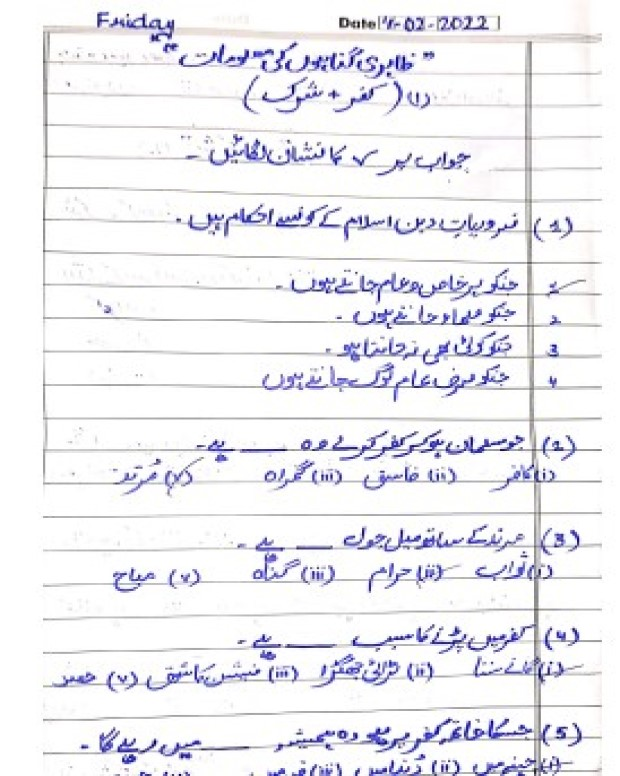 Friday Date 4-02-2022
"ظاہری گناہوں کی معلومات"
(۱) (کفر + شرک)
جواب پر ✓ کا نشان لگائیں ۔
(1) ضروریات دین اسلام کے کونسے احکام ہیں ۔
1 جنکو ہر خاص و عام جانتے ہوں ۔
2 جنکو علماء جانتے ہوں ۔
3 جنکو کوئی بھی نہ جانتا ہو ۔
4 جنکو صرف عام لوگ جانتے ہوں
(2) جو مسلمان ہو کر کفر کرے وہ ____ ہے ۔
(i) کافر (ii) فاسق (iii) گمراہ (v) مُرتد
(3) مرتد کے ساتھ میل جول ____ ہے ۔
(i) ثواب (ii) حرام (iii) گناہ (v) مباح
(4) کفر میں پڑنے کا سبب ____ ہے ۔
(i) گانے سننا (ii) لڑائی جھگڑا (iii) فیشن کا شوق (v) حسد
(5) جسکا خاتمہ کفر پر ہو وہ ہمیشہ ____ میں رہے گا ۔
(ii) دنیا میں (iii) قبر میں